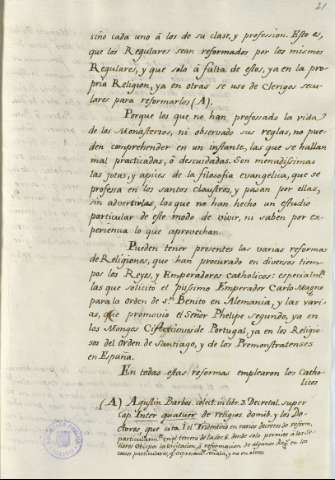 21
sino cada uno á los de su clase, y profesion. Esto es,
que los Regulares sean reformados por los mismos
Regulares, y que solo á falta de estos, ya en la pro
pria Religion, ya en otras se use de Clerigos secu-
lares para reformarlos (A).
Porque los que no han profesado la vida
de los Monasterios, ni observado sus reglas, no pue
den comprehender en un instante, las que se hallan
mal practicadas, ó descuidadas. Son menudissimas
las jotas, y apices de la filosofia evangelica, que se
profesa en los santos claustros, y pasan por ellas,
sin advertirlas, los que no han hecho un estudio
particular de este modo de vivir, ni saben por ex-
periencia lo que aprovechan.
Pueden tener presentes las varias reformas
de Religiones, que han procurado en diversos tiem
pos los Reyes, y Emperadores catholicos: especialmte
las que solicitó el piissimo Emperador Carlo Magno
para la orden de Sn. Benito en Alemania, y las vari-
as, que promovio el Señor Phelipe segundo, ya en
los Monges Cistercienses de Portugal, ya en los Religio
sos del Orden de Santiago, y de los Premonstratenses
en España.
En todas estas reformas emplearon los Catho-
licos
(A) Agustin Barbos. collect. in libr. D. Decretal. super
cap. Inter quatuor de religios domib. y los Do-
tores, que cita. El Tridentino en varios decretos de reform.